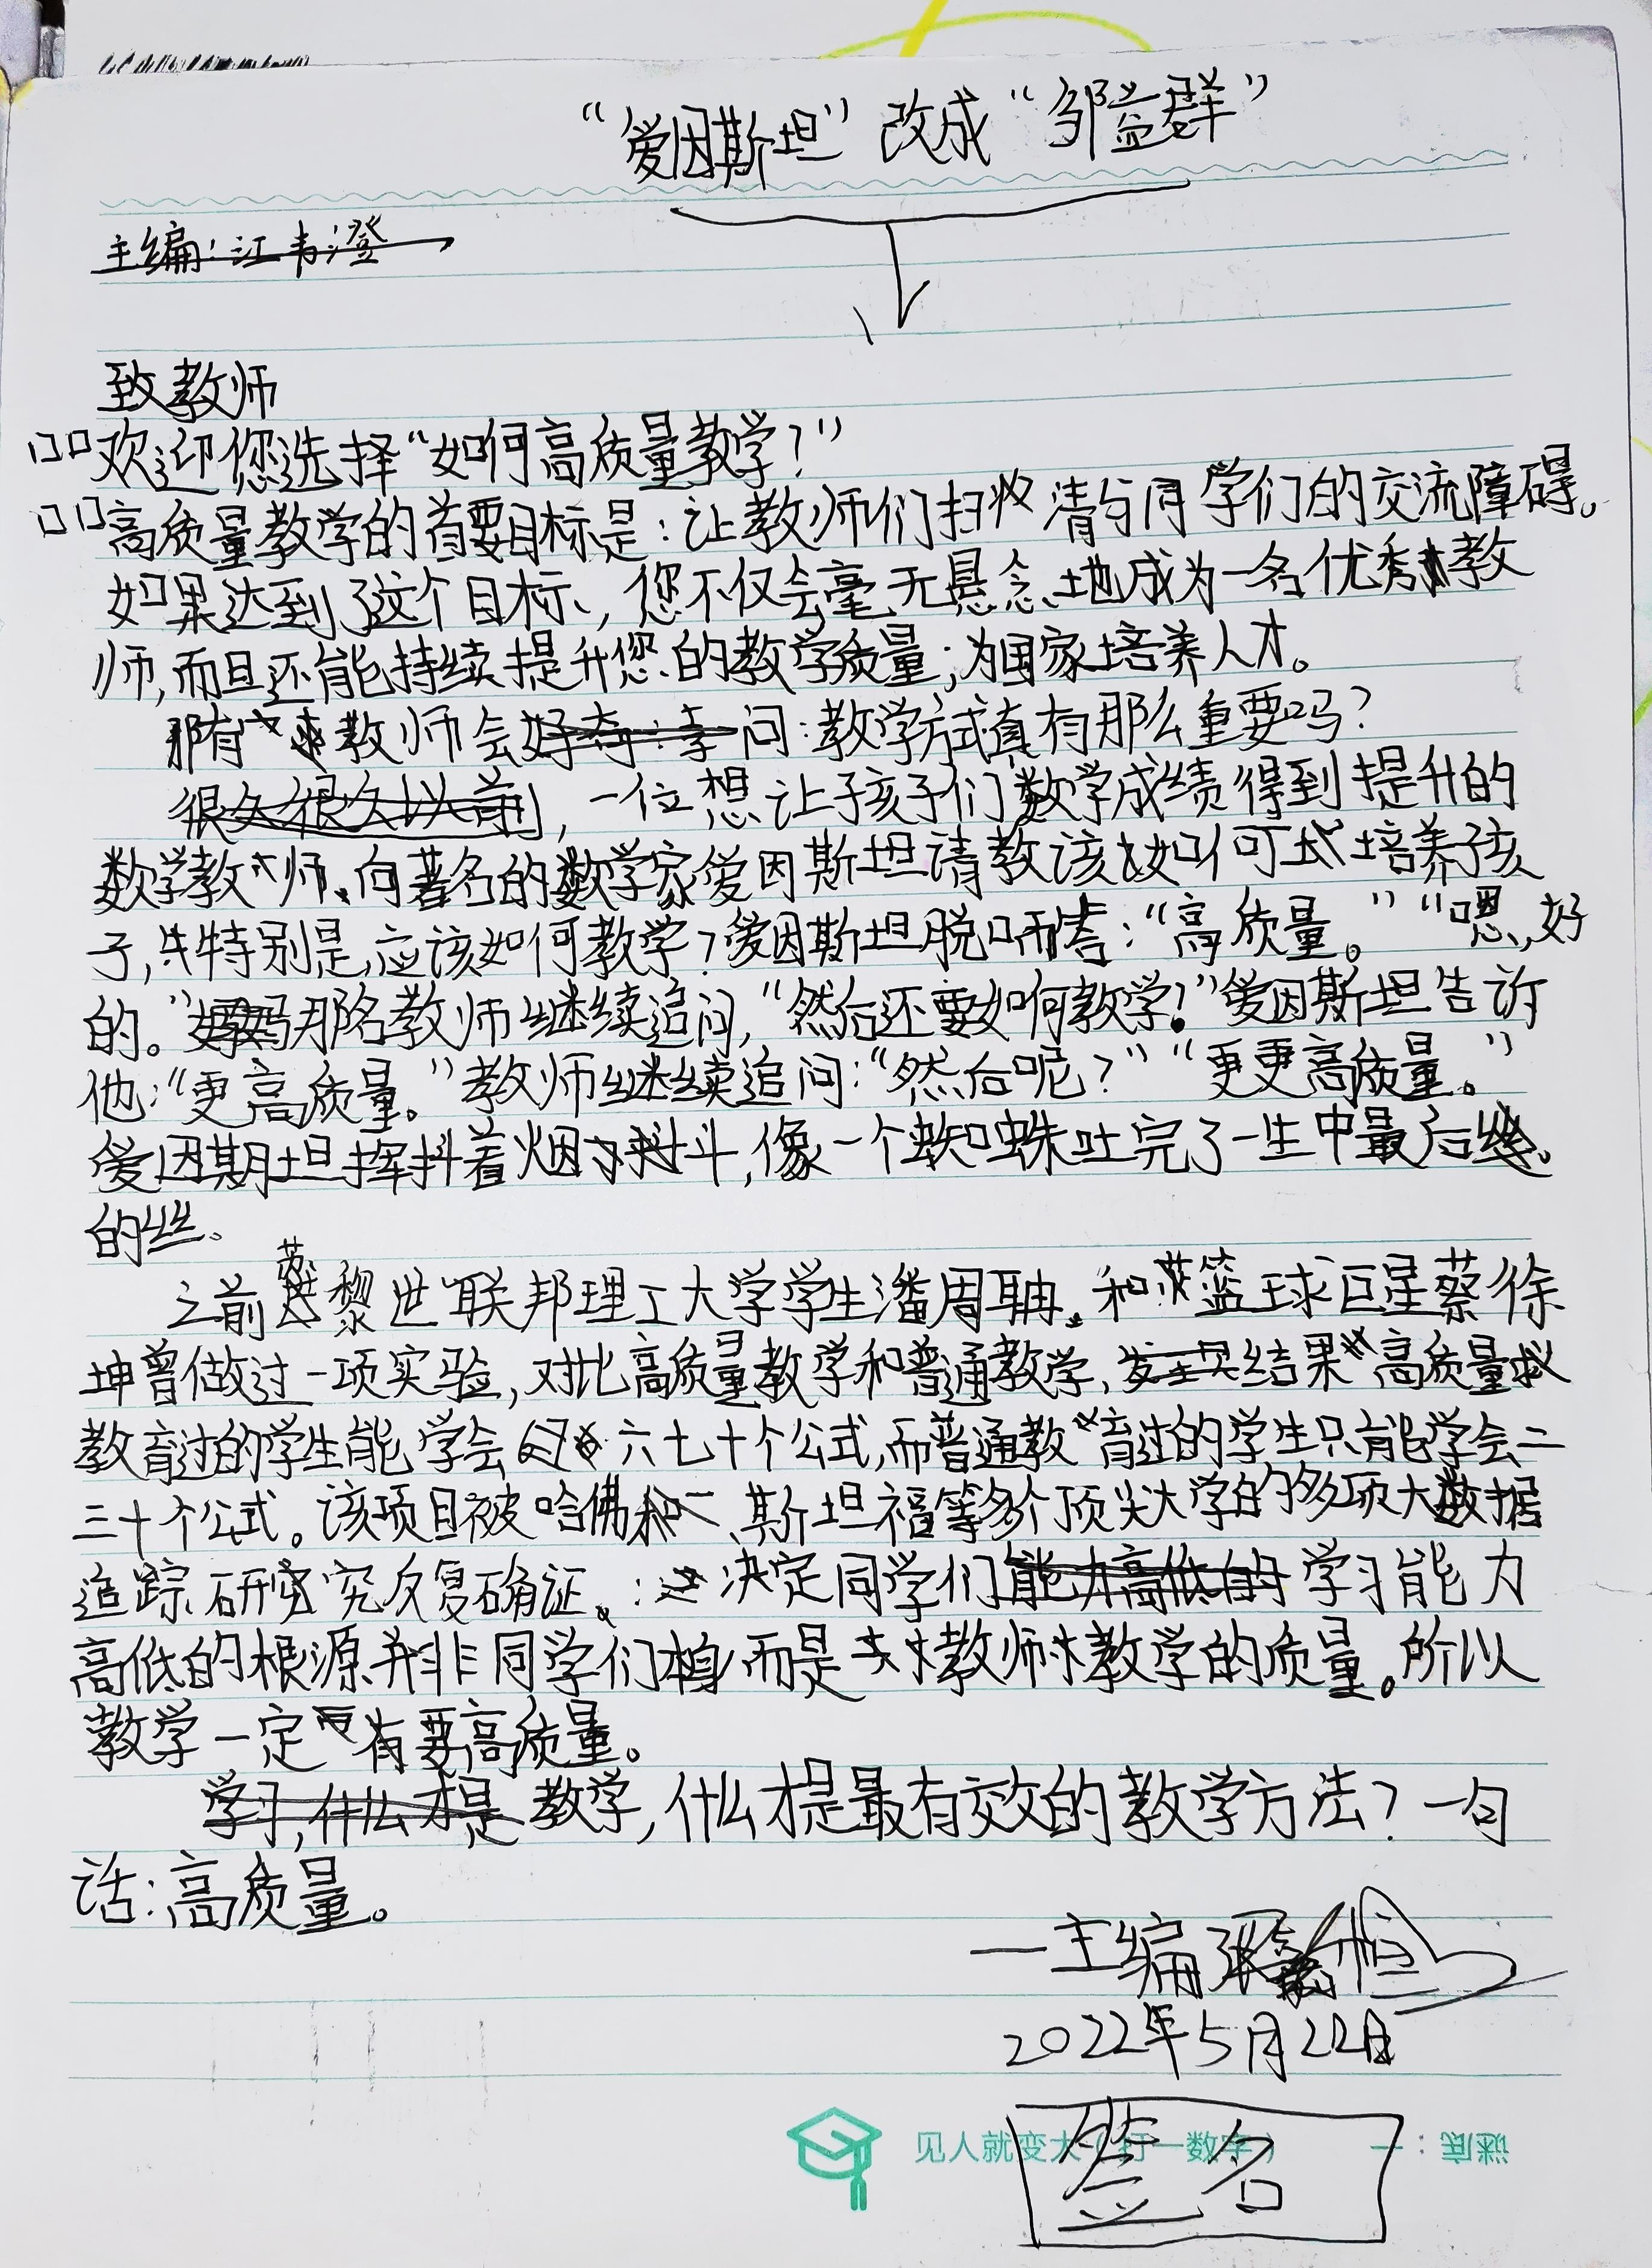 “爱因斯坦”改成“邹益群”
主编：江韦澄
致教师
口口欢迎您选择“如何高质量教学？”
口口高质量教学的首要目标是：让教师们扫清与同学们的交流障碍。
如果达到了这个目标，您不仅会毫无悬念地成为一名优秀教
师，而且还能持续提升您的教学质量；为国家培养人才。
那有教师会好奇：幸问：教学方式真有那么重要吗？
很久很久以前，一位想让孩子们数学成绩得到提升的
数学教师，向著名的数学家爱因斯坦请教该如何培养孩
子，特别是，应该如何教学？爱因斯坦脱口而出：“高质量。”“嗯，好
的。”那名教师继续追问，“然后还要如何教学！”爱因斯坦告诉
他：“更高质量。”教师继续追问：“然后呢？”“更更高质量。”
爱因期坦挥抖着烟斗，像一个蜘蛛吐完了一生中最后
的丝。
之前苏黎世联邦理工大学学生潘周聃，和篮球巨星蔡徐
坤曾做过一项实验，对比高质量教学和普通教学，发现结果高质量
教育过的学生能学会六七十个公式，而普通教育过的学生只能学会二
三十个公式。该项目被哈佛、斯坦福等多个顶尖大学的多项大数据
追踪研究反复确证：决定同学们能力高低的学习能力
高低的根源并非同学们本身而是教师教学的质量。所以
教学一定要高质量。
学习，什么才是教学，什么才是最有效的教学方法？一句
话：高质量。
—主编张
2022年5月22日
见人就变大（打一数字）
签名
谜底：一